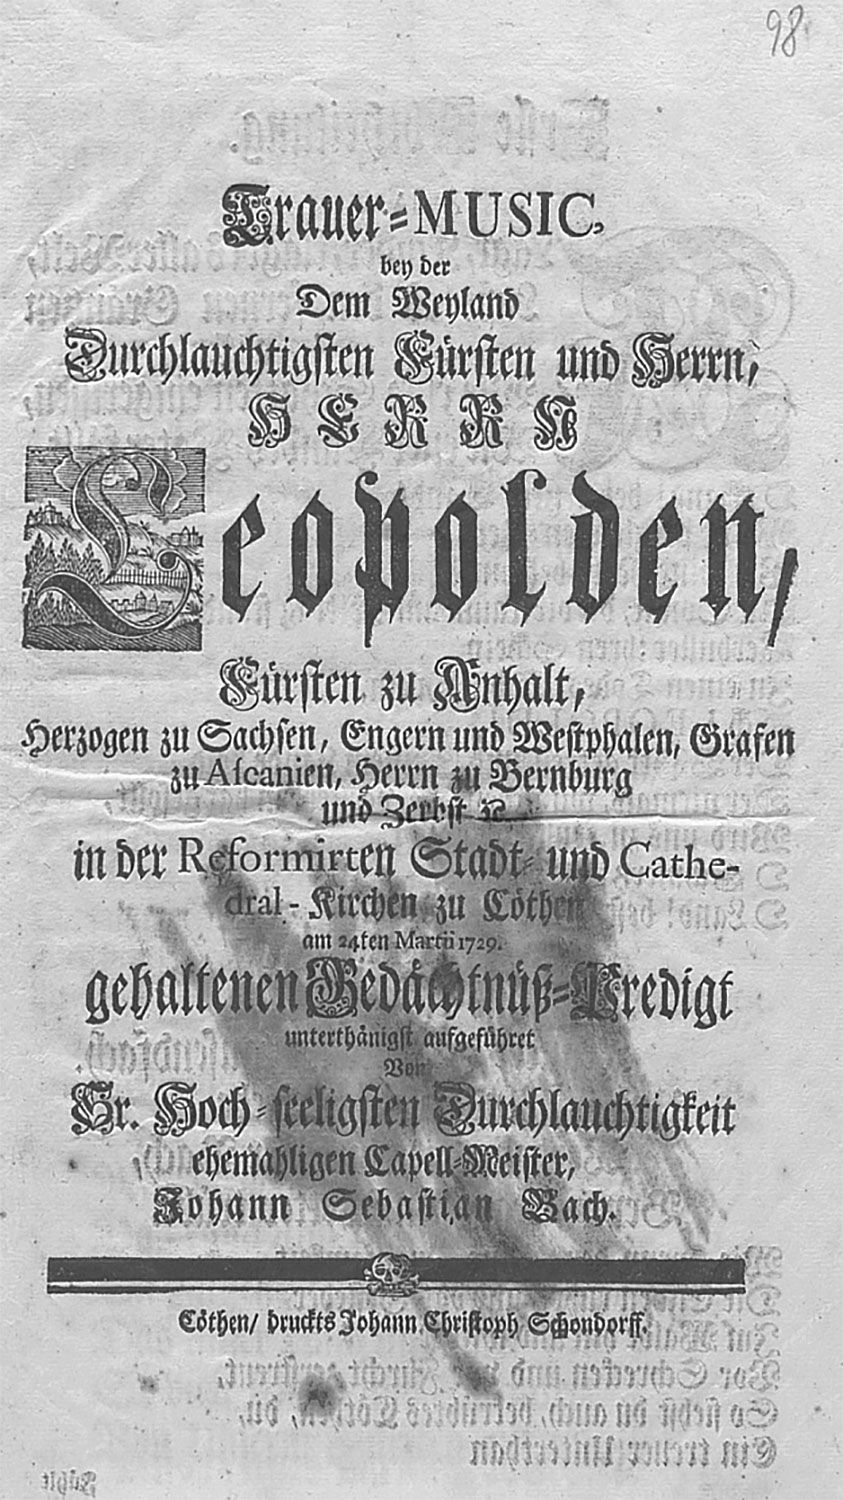 98
Trauer-MUSIC,
bey der
Dem Weyland
Durchlauchtigsten Fürsten und Herrn,
HERRN
Leopolden,
Fürsten zu Anhalt,
Herzogen zu Sachsen, Engern und Westphalen, Grafen
zu Ascanien, Herrn zu Bernburg
und Zerbst ꝛc.
in der Reformirten Stadt- und Cathe-
dral-Kirchen zu Cöthen
am 24ten Martii 1729.
gehaltenen Gedächtnüß-Predigt
unterthänigst aufgeführet
Von
Sr. Hoch-seeligsten Durchlauchtigkeit
ehemahligen Capell-Meister,
Johann Sebastian Bach.
Cöthen/ druckts Johann Christoph Schondorff.